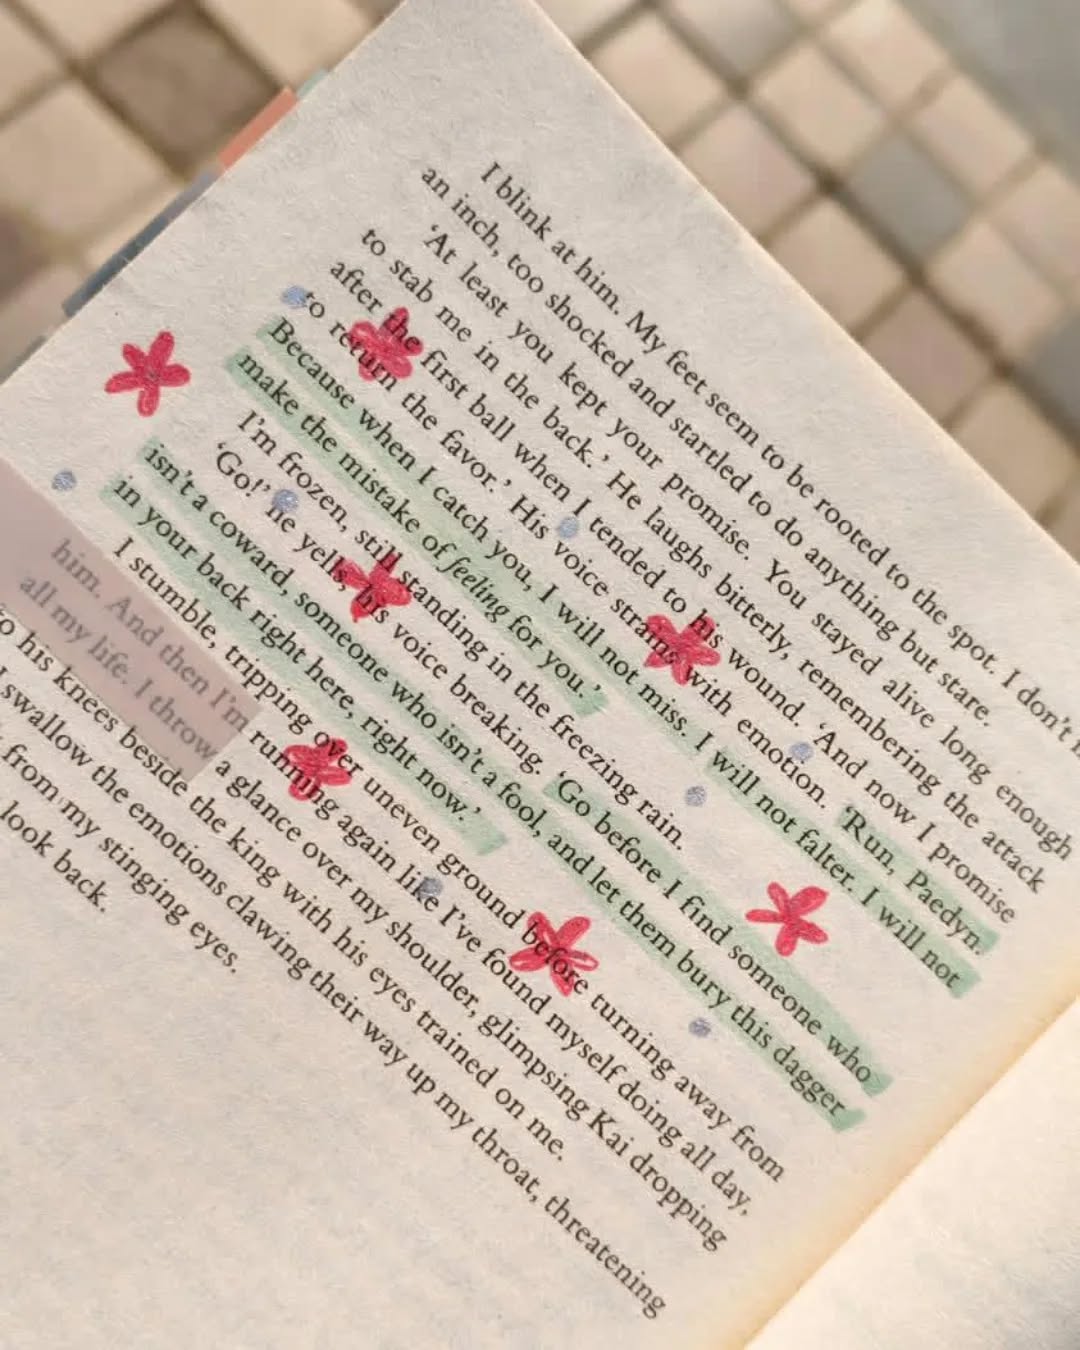 I blink at him. My feet seem to be rooted to the spot. I don't
an inch, too shocked and startled to do anything but stare.
‘At least you kept your promise. You stayed alive long enough
to stab me in the back.’ He laughs bitterly, remembering the attack
after the first ball when I tended to his wound. ‘And now I promise
to return the favor.’ His voice strains with emotion. ‘Run, Paedyn.
Because when I catch you, I will not miss. I will not falter. I will not
make the mistake of feeling for you.’
I’m frozen, still standing in the freezing rain.
‘Go!’ he yells, his voice breaking. ‘Go before I find someone who
isn’t a coward, someone who isn’t a fool, and let them bury this dagger
in your back right here, right now.’
I stumble, tripping over uneven ground before turning away from
him. And then I’m running again like I’ve found myself doing all day,
all my life. I throw a glance over my shoulder, glimpsing Kai dropping
to his knees beside the king with his eyes trained on me.
I swallow the emotions clawing their way up my throat, threatening
from my stinging eyes.
look back.